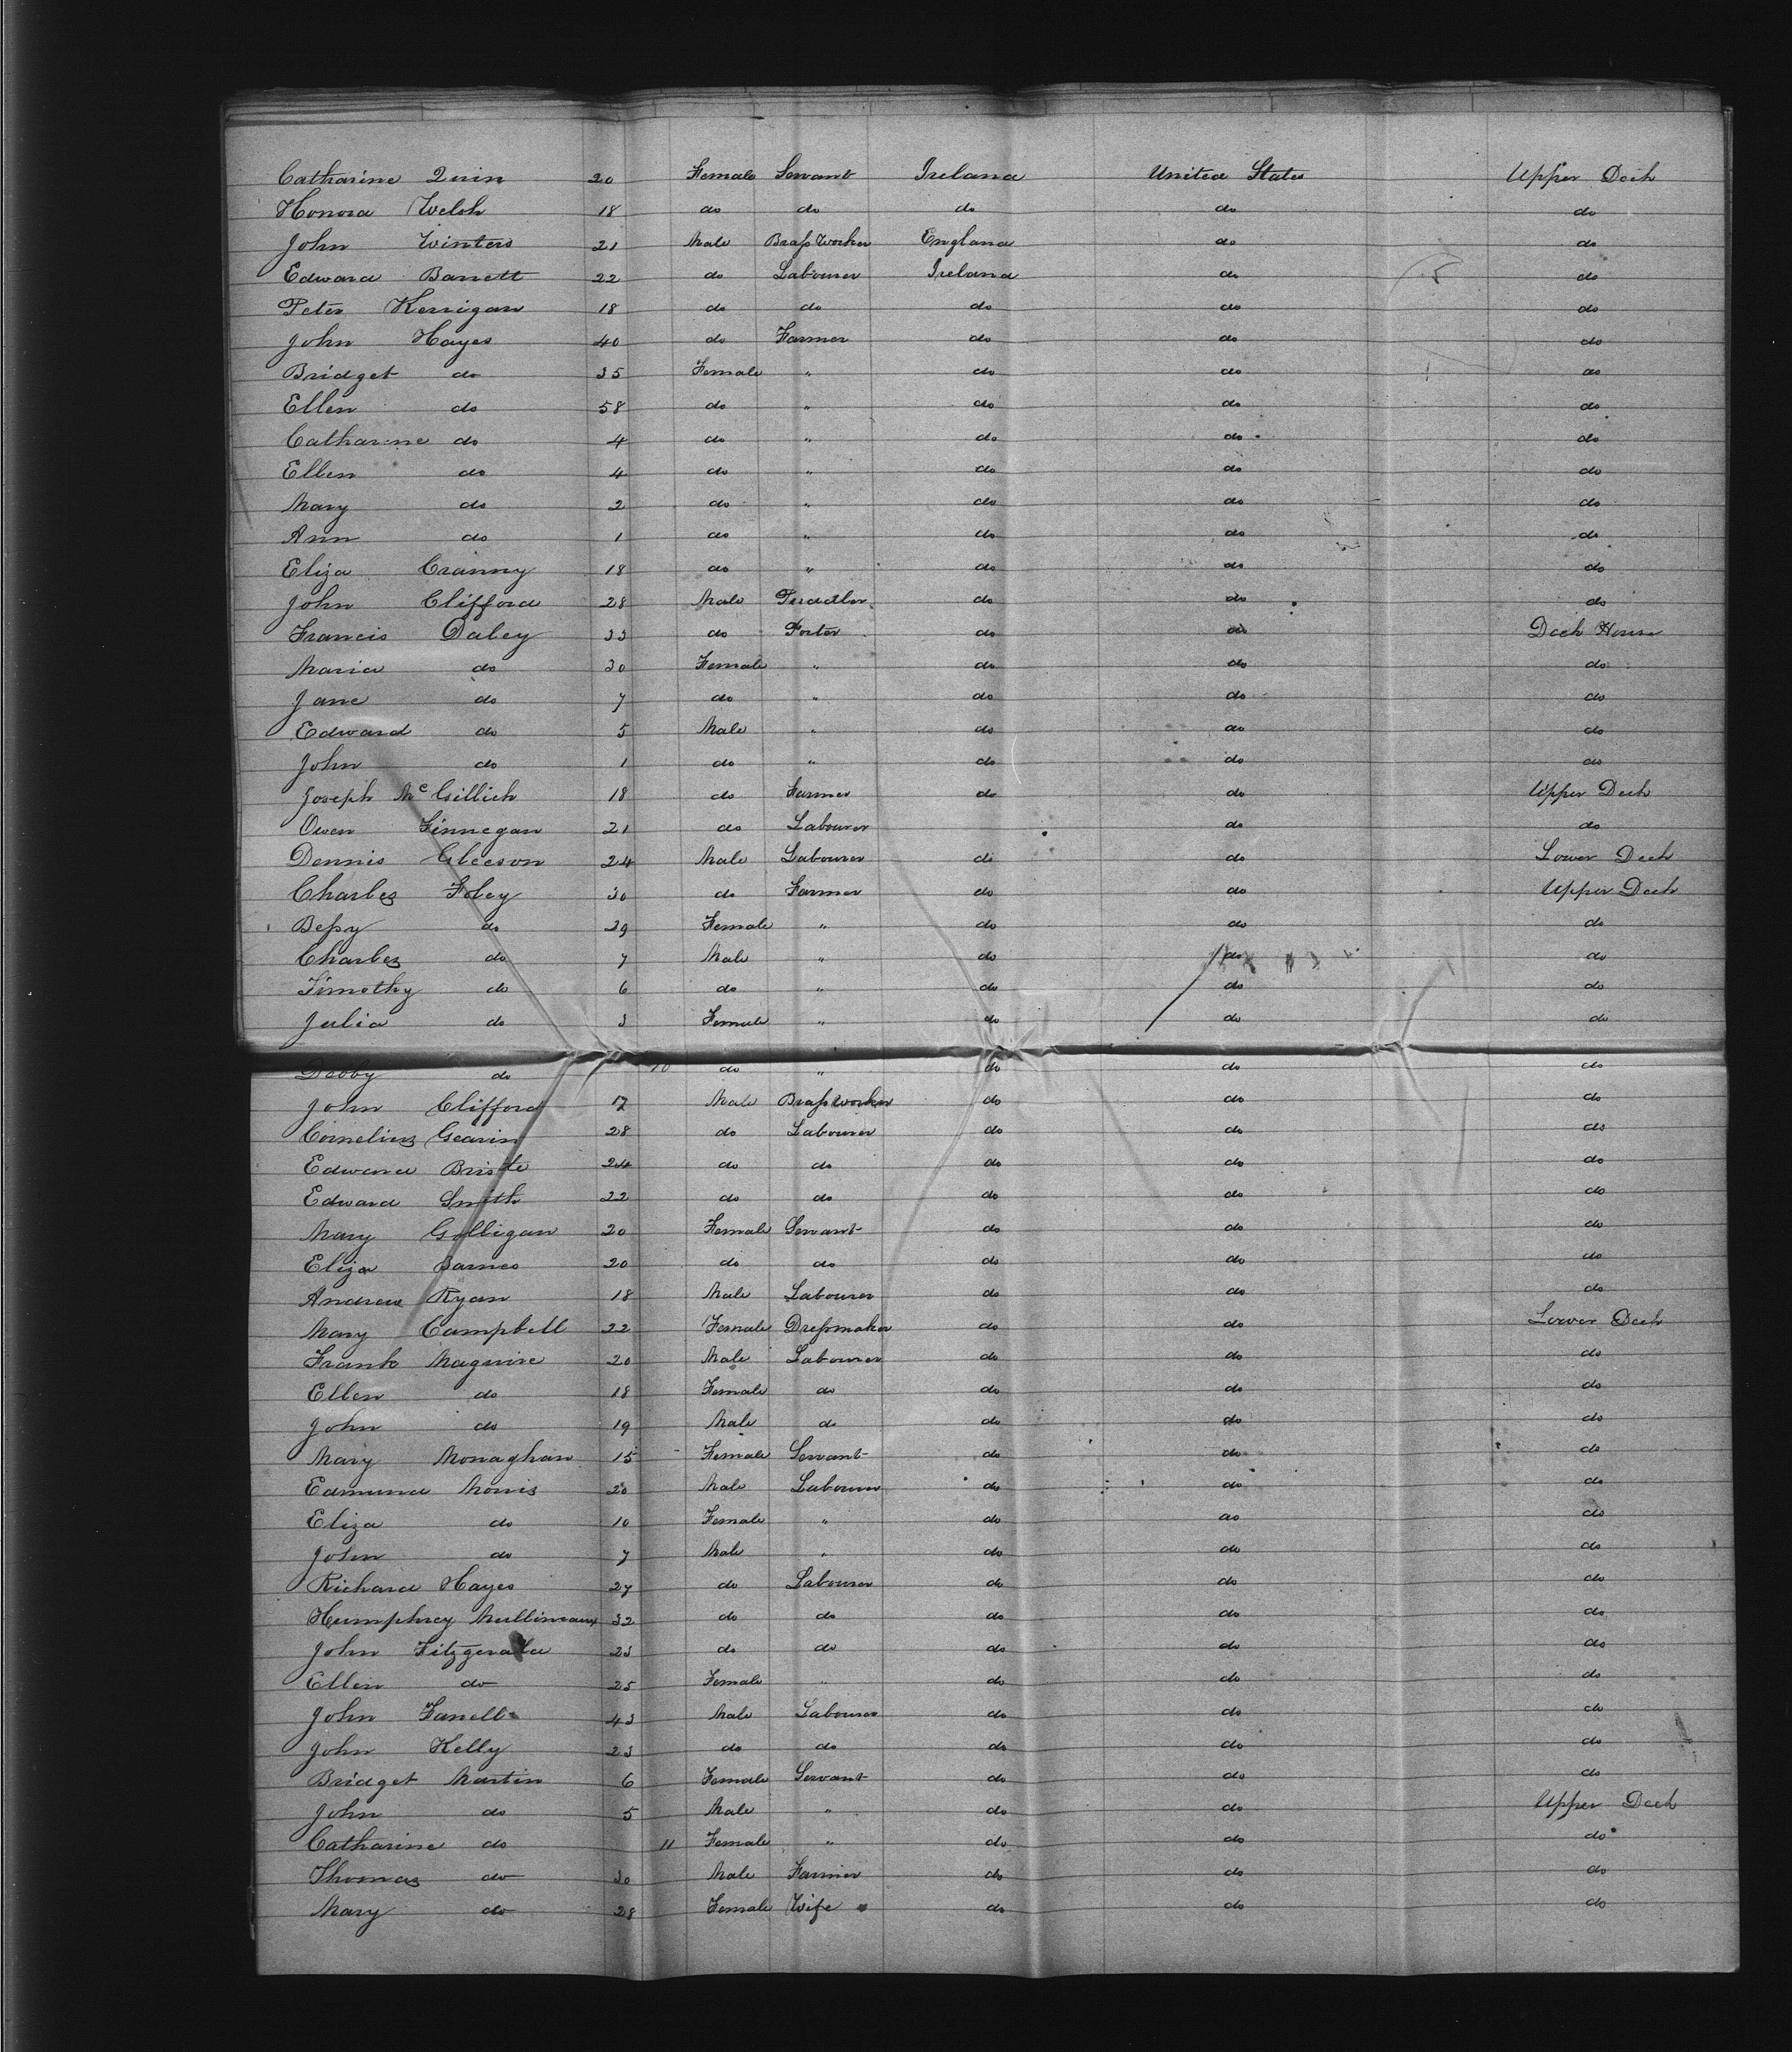 Catharine Quin 20 Female Servant Ireland United States Upper Deck
Honora Welsh 18 do do do do do
John Winters 21 Male Brass Worker England do do
Edward Barrett 22 do Labourer Ireland do do
Peter Kerrigan 18 do do do do do
John Hayes 40 do Farmer do do do
Bridget do 35 Female " do do do
Ellen do 58 do " do do do
Catharine do 4 do " do do do
Ellen do 4 do " do do do
Mary do 2 do " do do do
Ann do 1 do " do do do
Eliza Cranny 18 do " do do do
John Clifford 28 Male do do do
Francis Daley 33 do Porter do do Deck House
Maria do 30 Female " do do do
Jane do 7 do " do do do
Edward do 5 Male " do do do
John do 1 do " do do do
Joseph McGillick 18 do Farmer do do Upper Deck
Owen Finnegan 21 do Labourer do do
Dennis Gleeson 24 Male Labourer do do Lower Deck
Charles Foley 30 do Farmer do do Upper Deck
Bessy do 29 Female " do do do
Charles do 7 Male " do do do
Timothy do 6 do " do do do
Julia do 3 Female " do do do
Debby do 10 do " do do do
John Clifford 17 Male Brass worker do do do
Cornelius Gearin 28 do Labourer do do do
Edward 24 do do do do do
Edward Smith 22 do do do do do
Mary Gilligan 20 Female Servant do do do
Eliza Barnes 20 do do do do do
Andrew Ryan 18 Male Labourer do do do
Mary Campbell 22 Female Dressmaker do do Lower Deck
Frank Maguire 20 Male Labourer do do do
Ellen do 18 Female do do do do
John do 19 Male do do do do
Mary Monaghan 15 Female Servant do do do
Edmund Morris 20 Male Labourer do do do
Eliza do 10 Female " do do do
John do 7 Male " do do do
Richard Hayes 27 do Labourer do do do
Humphrey 32 do do do do do
John Fitzgerald 23 do do do do do
Ellen do 25 Female " do do do
John Farrell 43 Male Labourer do do do
John Kelly 23 do do do do do
Bridget Martin 6 Female Servant do do do
John do 5 Male " do do Upper Deck
Catharine do 11 Female " do do do
Thomas do 30 Male Farmer do do do
Mary do 28 Female Wife do do do